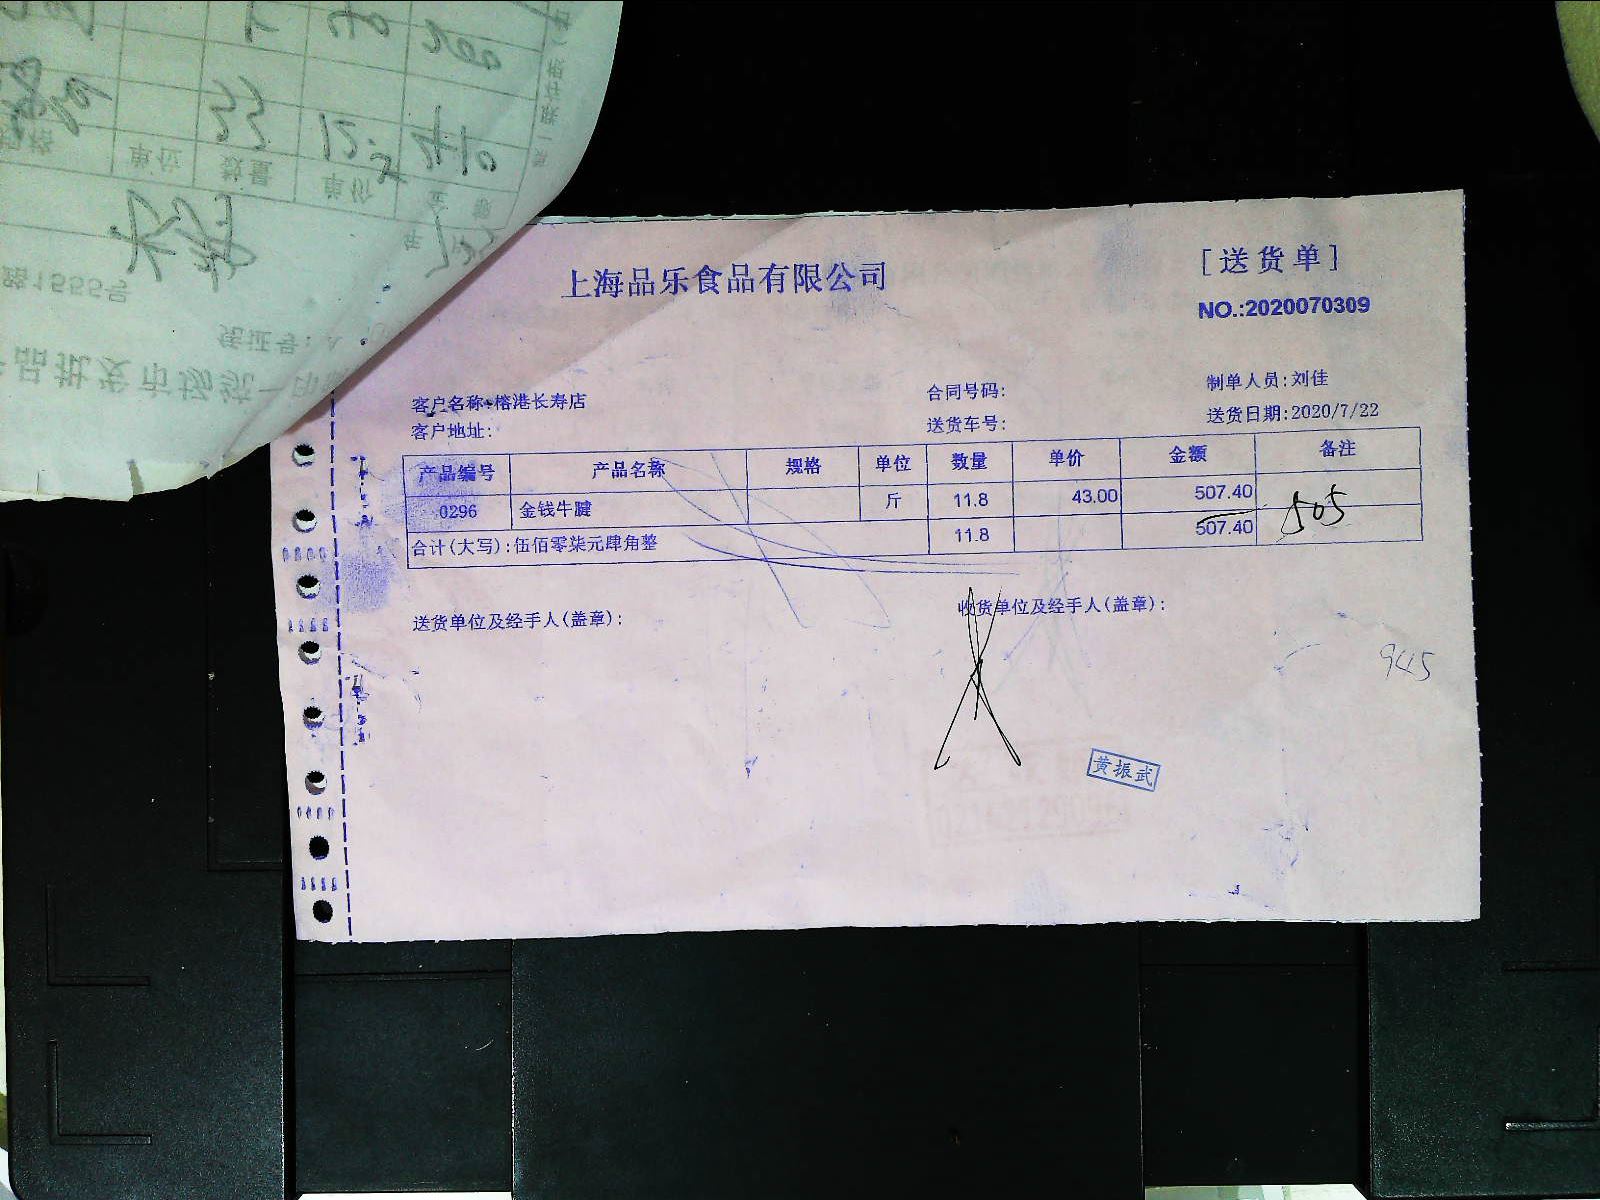 上海品乐食品有限公司
[送货单]
NO.:2020070309
客户名称:榕港长寿店
合同号码:
制单人员:刘佳
客户地址:
送货车号:
送货日期:2020/7/22
产品编号 产品名称 规格 单位 数量 单价 金额 备注
0296 金钱牛腱 斤 11.8 43.00 507.40
合计(大写):伍佰零柒元肆角整 11.8 507.40 505
送货单位及经手人(盖章):
收货单位及经手人(盖章):
945
黄振武
单位 数量 单价
33
路1555号
凭证号:
品批发市场统一印